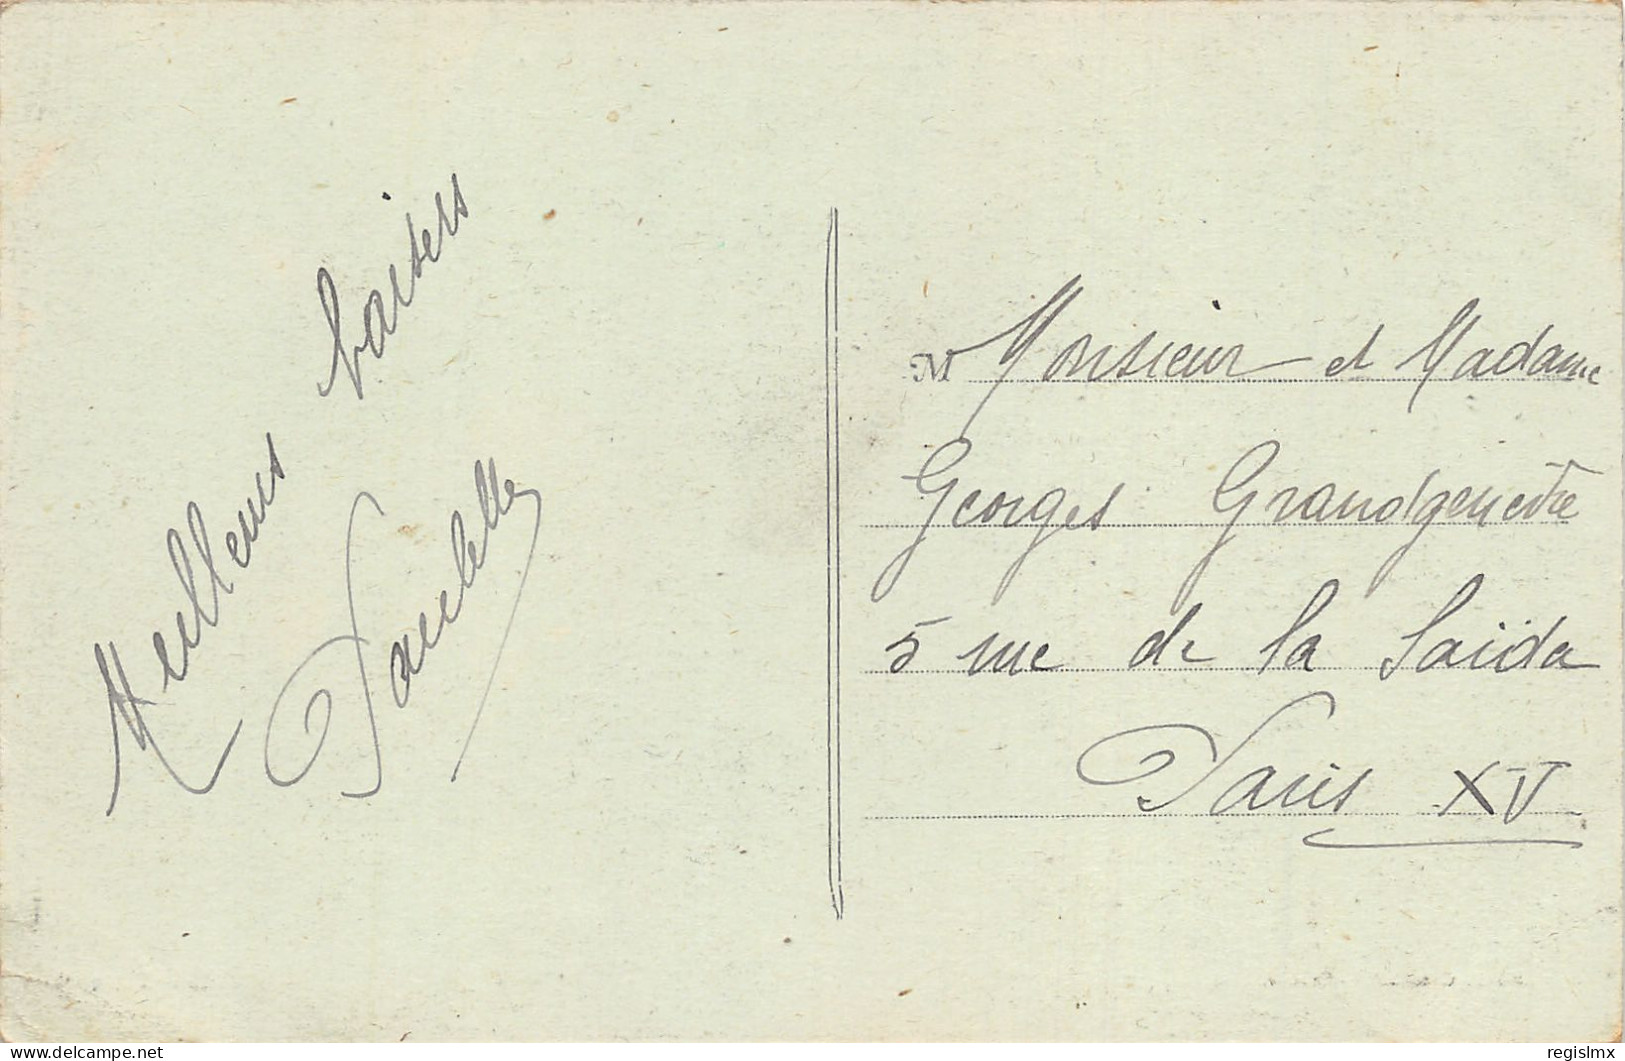 Meilleurs baisers
Paulette
M Monsieur et Madame
Georges Grandgenèvre
5 rue de la Saïda
Paris XV
delcampe.net
regislmx